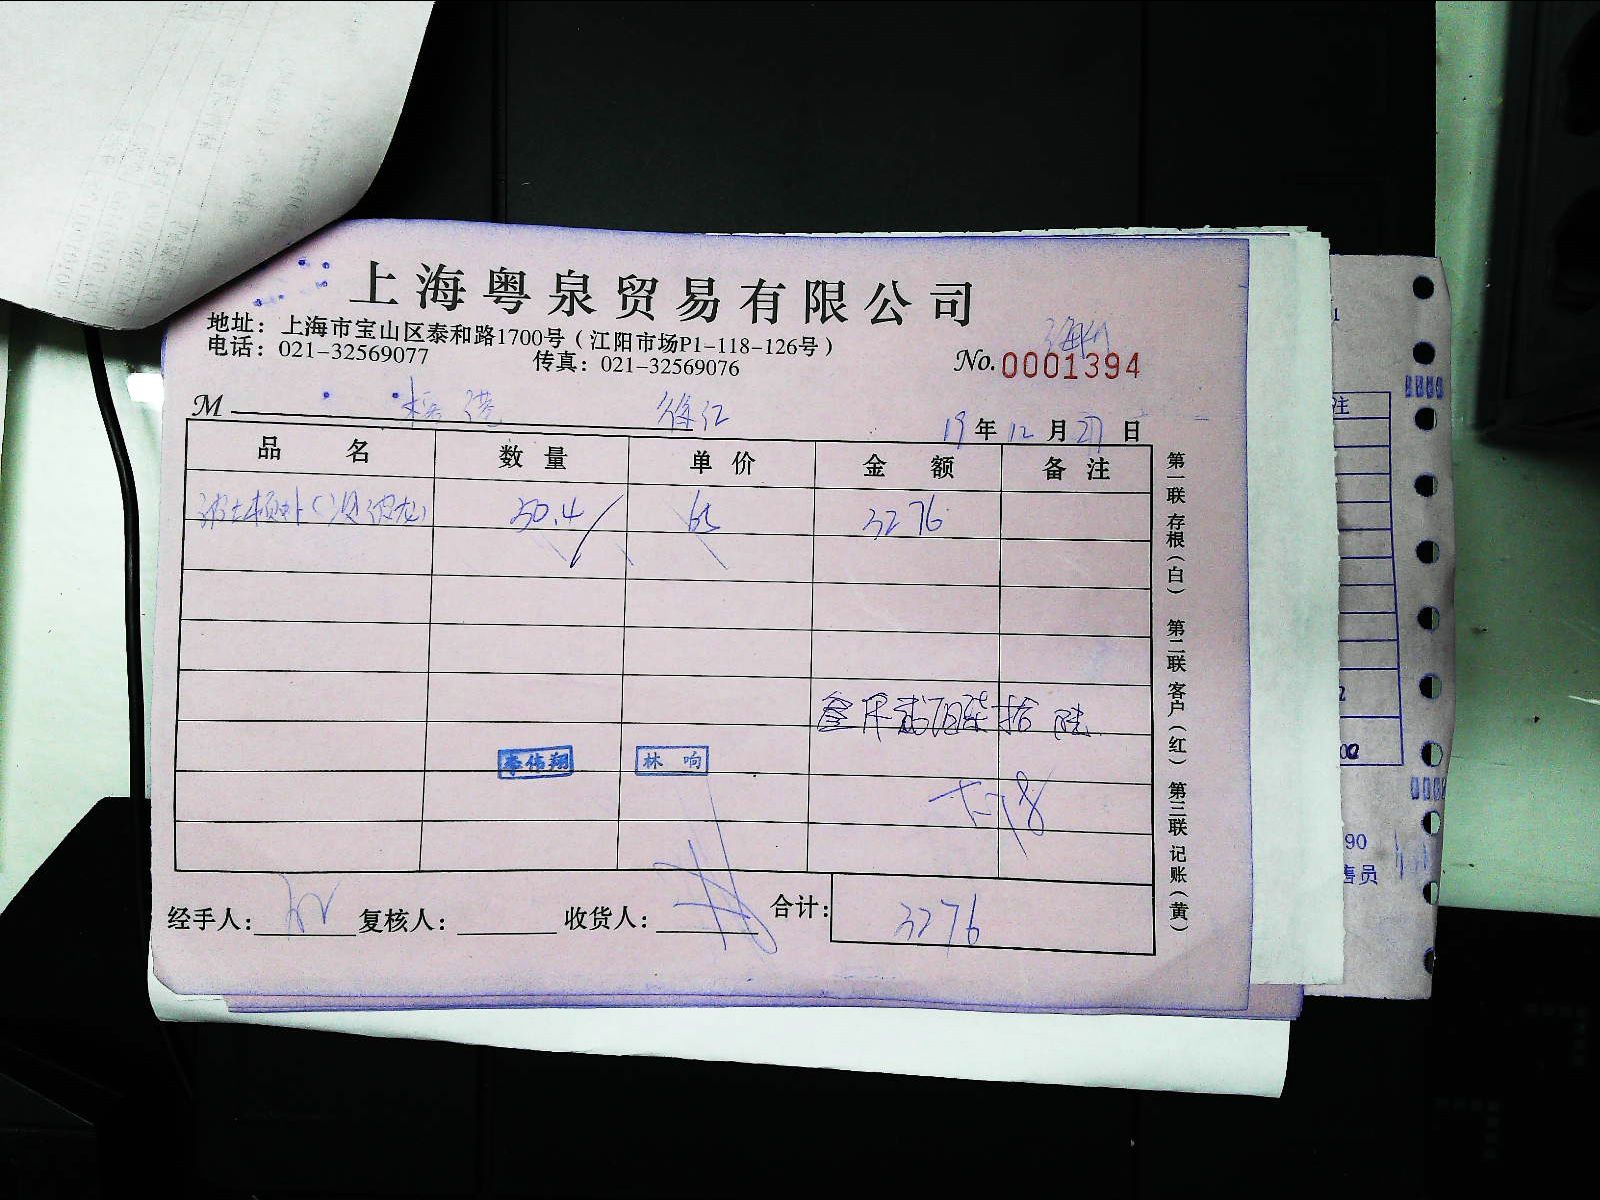 上海粤泉贸易有限公司
地址：上海市宝山区泰和路1700号（江阳市场P1-118-126号）
电话：021-32569077 传真：021-32569076
No. 0001394
M 徐汇 19年12月27日
品名 数量 单价 金额 备注
50.4 65 3276
叁仟贰佰柒拾陆
李伟翔 林响
经手人： 复核人： 收货人： 合计： 3276
第一联 存根（白） 第二联 客户（红） 第三联 记账（黄）
注
90
售员